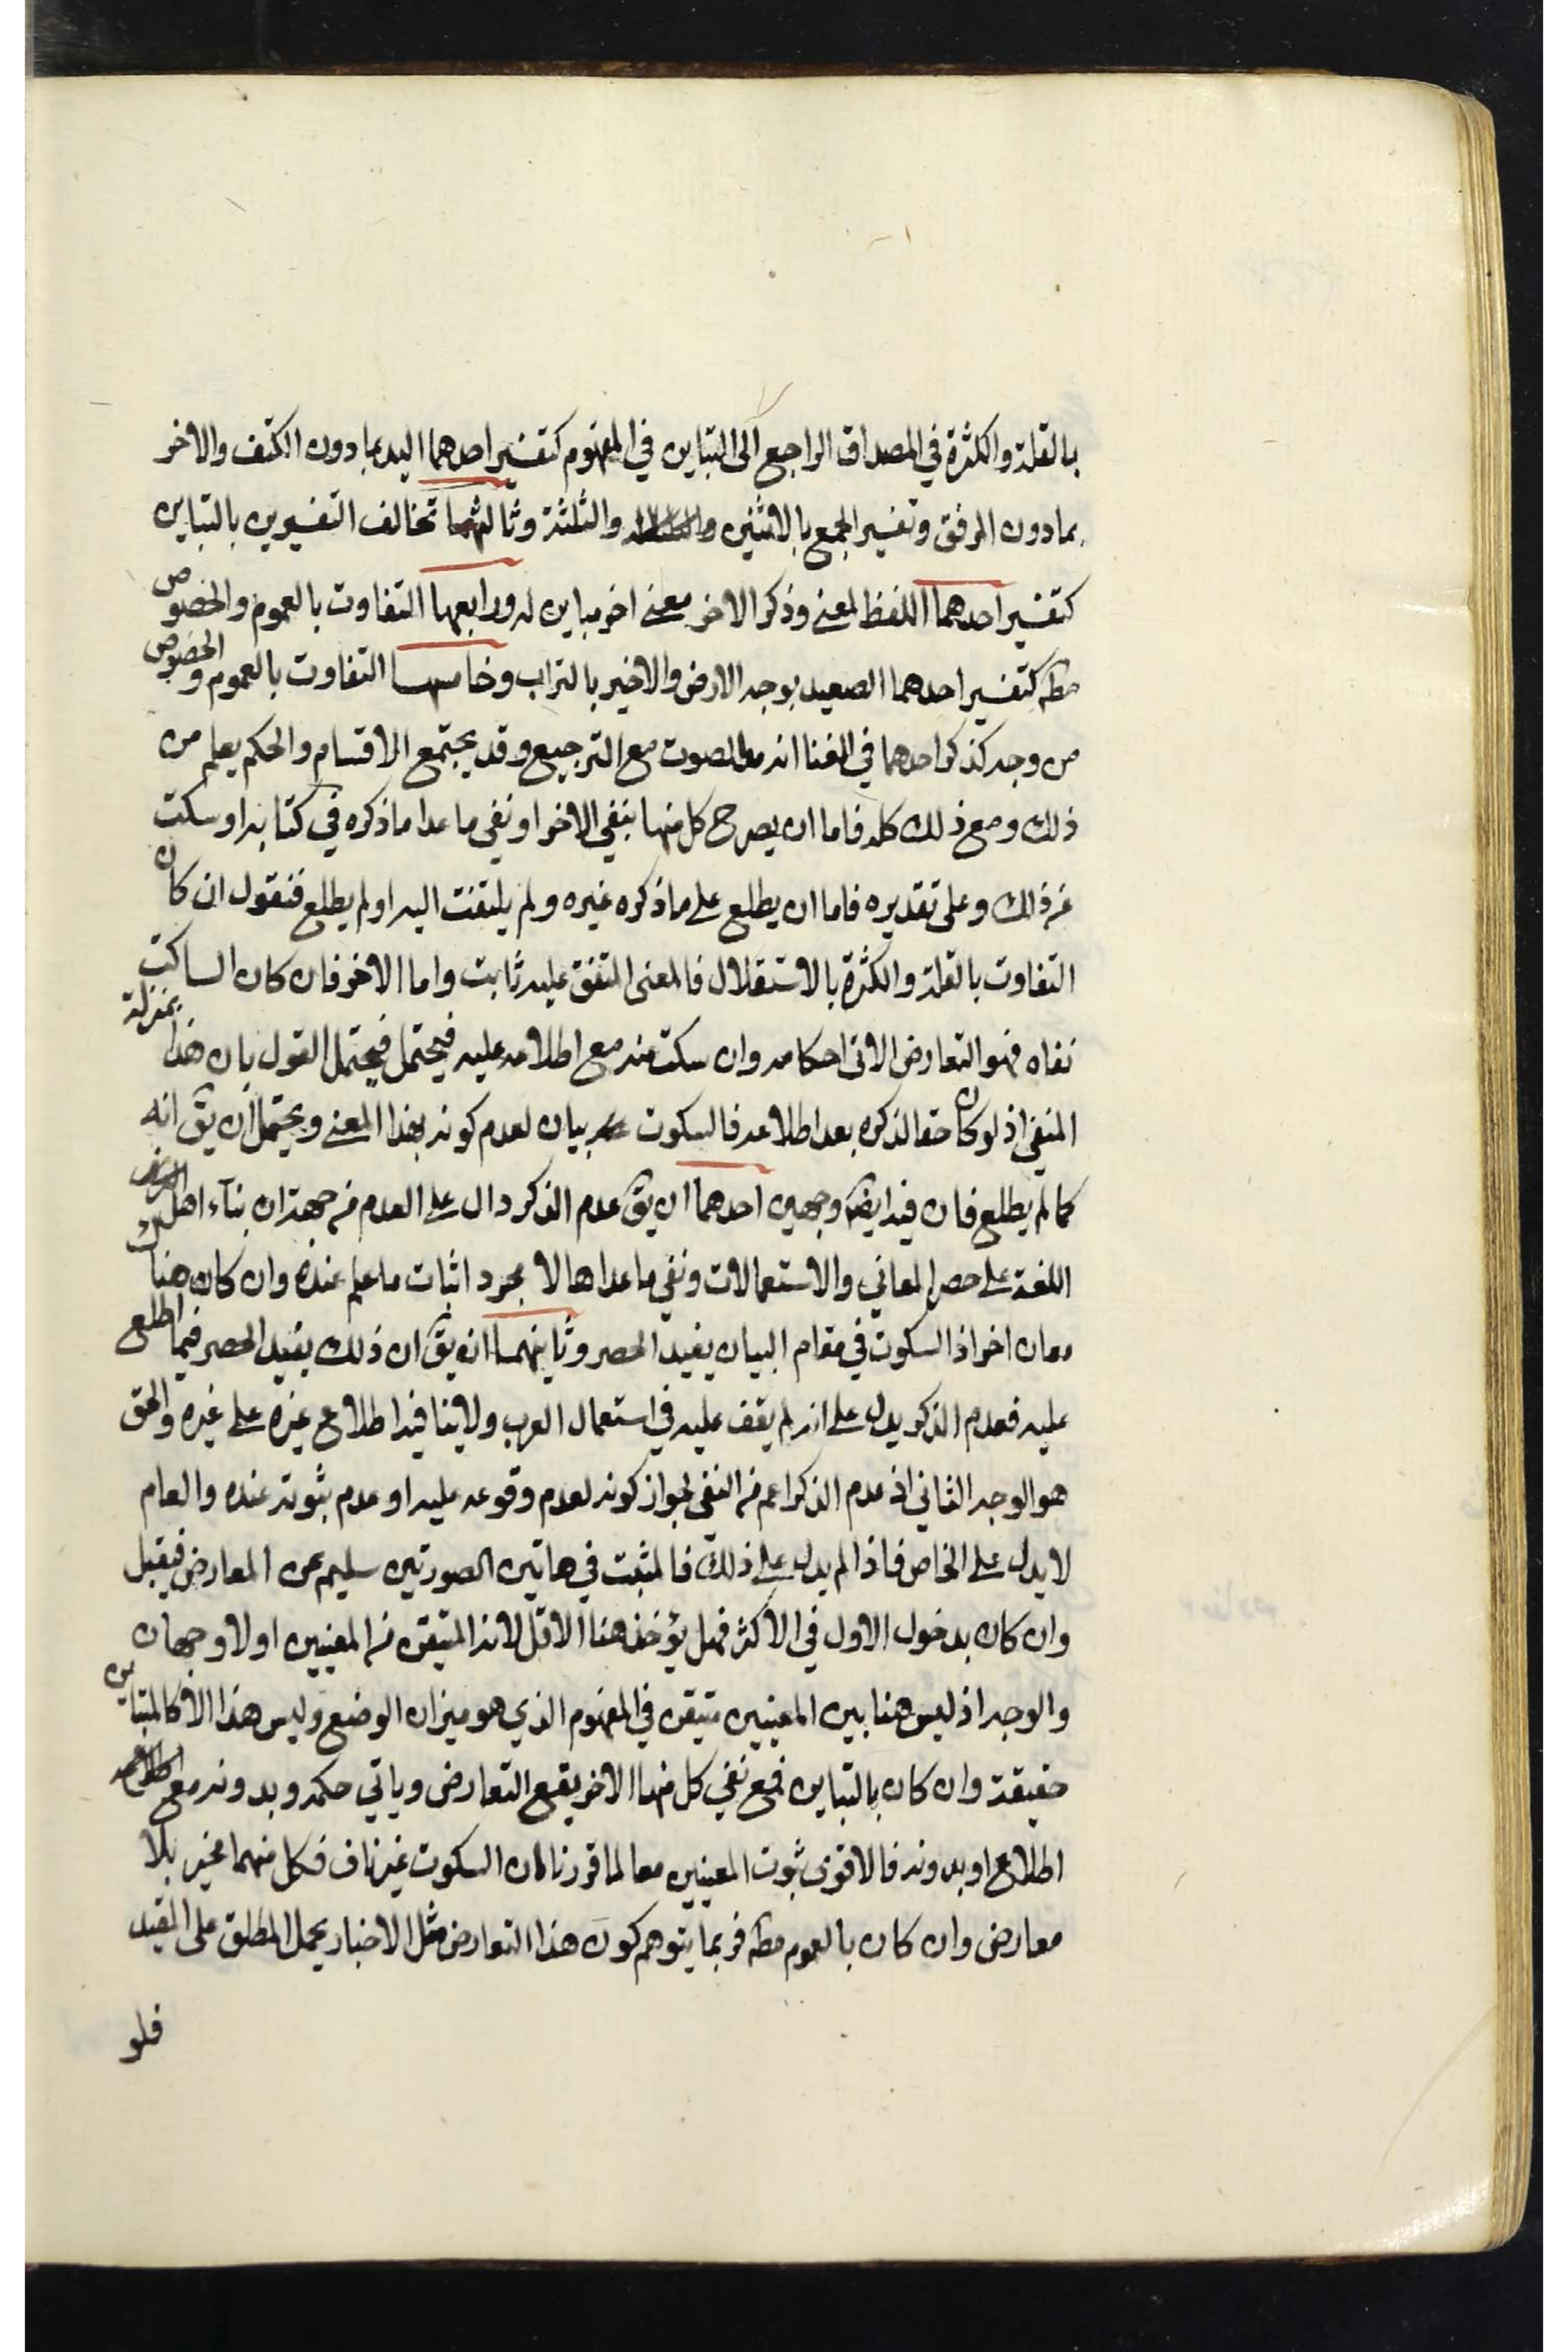 بالقلة والكثرة في المصداق الراجع الى التباين في المفهوم كتفسير احدهما اليد بما دون الكتف والاخر
بما دون المرفق وتفسير الجمع بالاثنين والثلثة وثالثها تخالف التفسيرين بالتباين
كتفسير احدهما اللفظ لمعنى وذكر الاخر معنى اخر مباين له ورابعها التفاوت بالعموم والخصوص
مطه كتفسير احدهما الصعيد بوجه الارض والاخير بالتراب وخامسها التفاوت بالعموم والخصوص
من وجه كذكر احدهما في الغنا انه مد الصوت مع الترجيع وقد يجتمع الاقسام والحكم يعلم من
ذلك ومع ذلك كله فاما ان يصرح كل منها بنفي الاخر او نفي ما عدا ما ذكره في كتابه او سكت
عن ذلك وعلى تقديره فاما ان يطلع على ما ذكره غيره ولم يلتفت اليه او لم يطلع فنقول ان كان
التفاوت بالقلة والكثرة بالاستقلال فالمعنى المتفق عليه ثابت واما الاخر فان كان الساكت
نفاه فهو التعارض الاتي احكامه وان سكت عنه مع اطلاعه عليه فيحتمل فيحتمل القول بان هذا بمنزلة
المنفي اذ لو كان حقا لذكره بعد اطلاعه فالسكوت بيان لعدم كونه بهذا المعنى ويحتمل ان يق انه
كما لم يطلع فان فيه ايضا وجهين احدهما ان يق عدم الذكر دال على العدم من جهة ان بناء اهل
اللغة على حصر المعاني والاستعمالات ونفي ما عداها لا مجرد اثبات ما علم عنده وان كان هناك
معان اخر اذ السكوت في مقام البيان يفيد الحصر وثانيهما انه يق ان ذلك يفيد الحصر فيما اطلع
عليه فعدم الذكر يدل على انه لم يقف عليه في استعمال العرب ولا ينافيه اطلاع غيره على غيره والحق
هو الوجه الثاني اذ عدم الذكر اعم من النفي لجواز كونه لعدم وقوعه عليه او عدم ثبوته عنده والعام
لا يدل على الخاص فاذا لم يدل على ذلك فالمثبت في هاتين الصورتين سليم عن المعارض فيقبل
وان كان بدخول الاول في الاكثر فهل يؤخذ هنا الاقل لانه المتيقن من المعنيين او لا وجهان
والوجه اذ ليس هنا بين المعنيين متيقن في المفهوم الذي هو ميزان الوضع وليس هذا الا كالمتباين
حقيقة وان كان بالتباين فمع نفي كل منهما الاخر يقع التعارض وياتي حكمه وبدونه مع
اطلاع او بدونه فالاقوى ثبوت المعنيين معا لما قررنا من ان السكوت غير ناف فكل منهما مخبر بلا
معارض وان كان بالعموم مطه فربما يتوهم كون هذا التعارض مثل الاخبار يحمل المطلق على المقيد
فلو